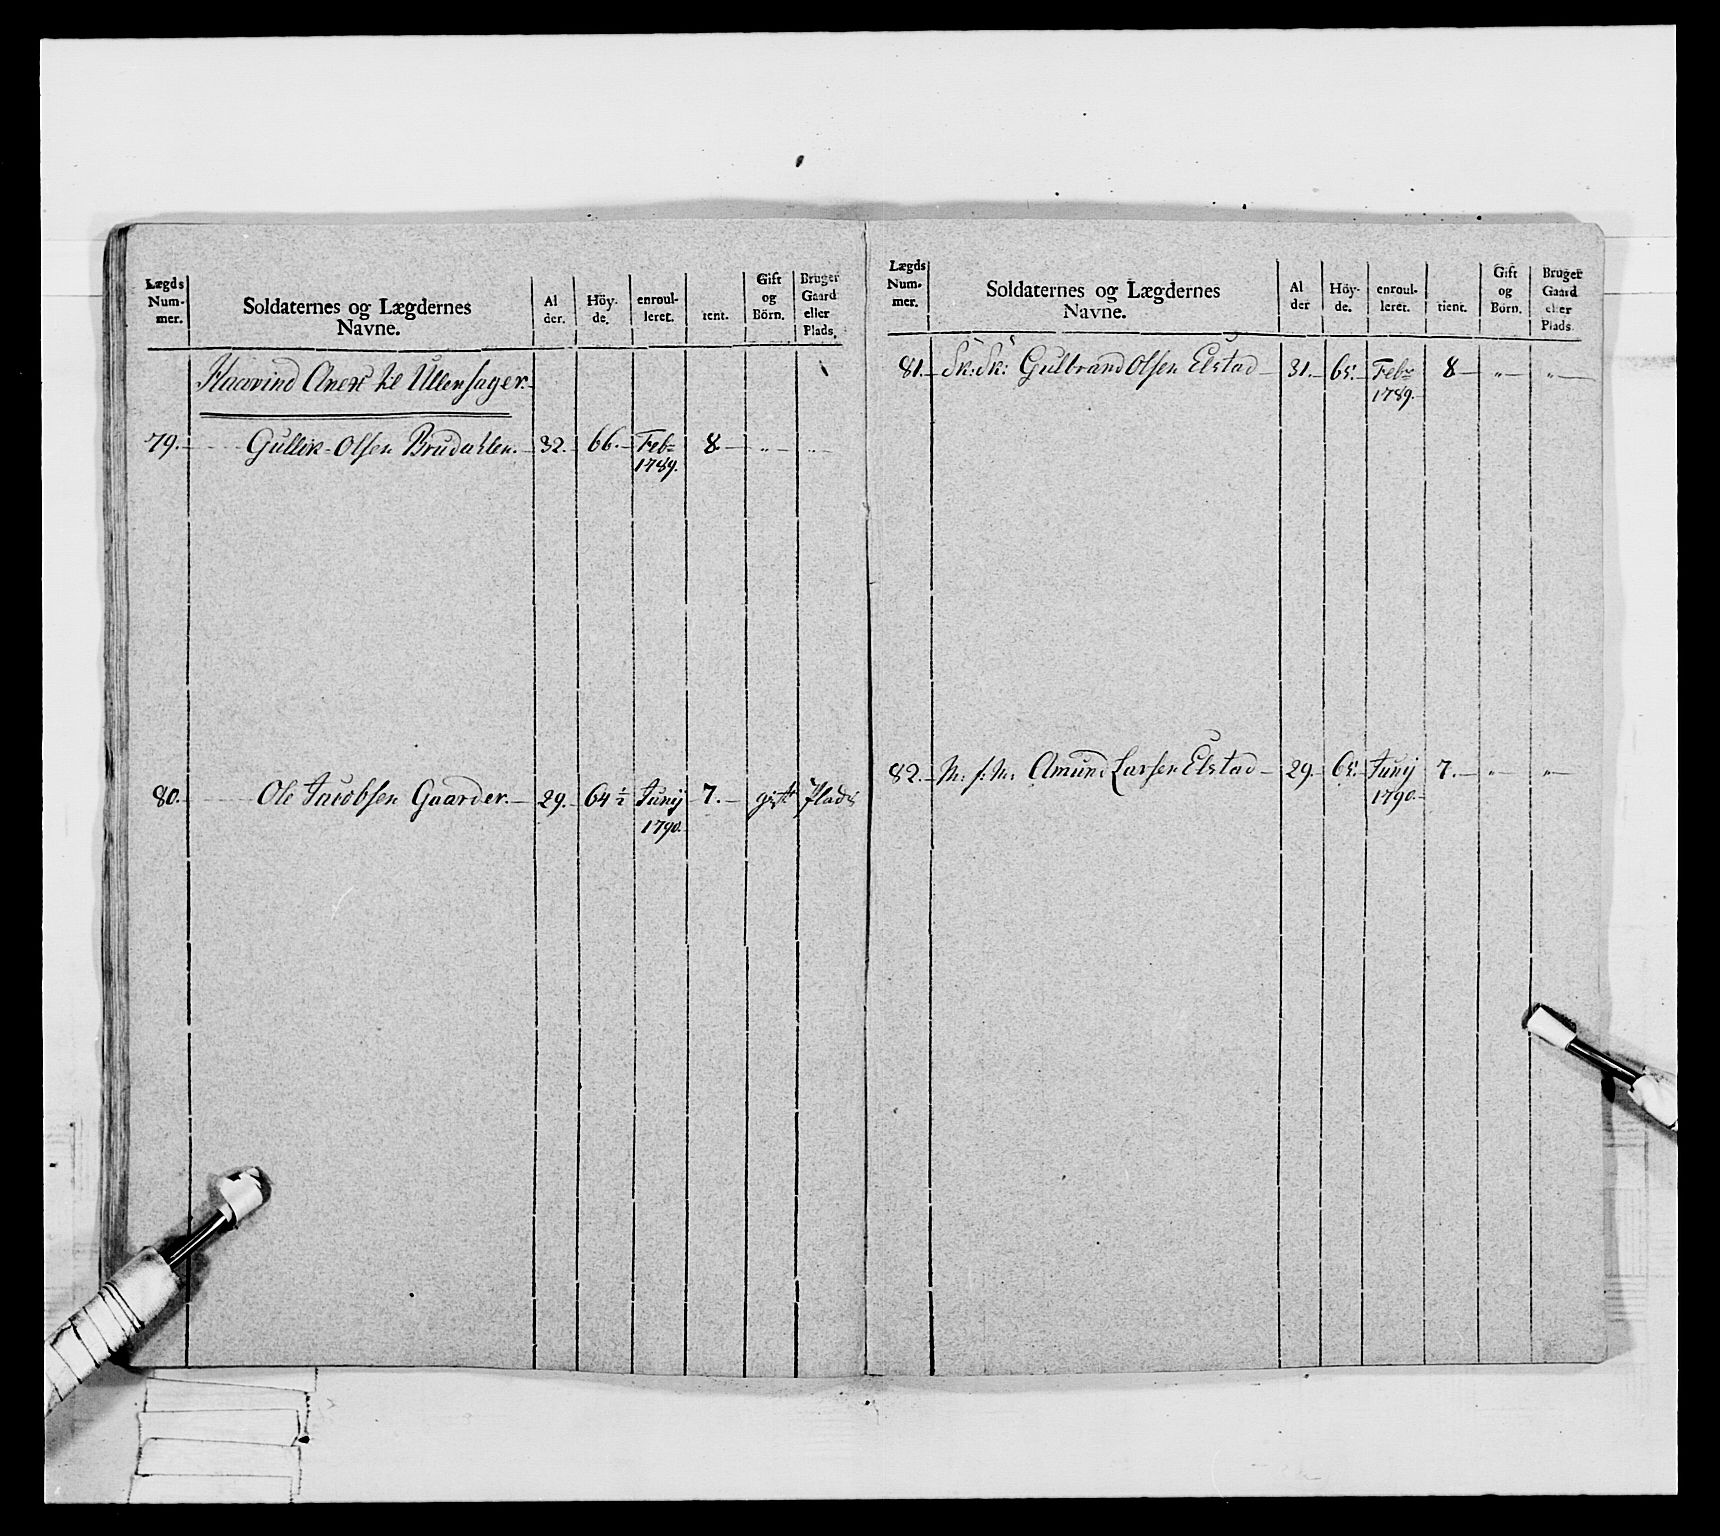 Lægds Num- mer.
Soldaternes og Lægdernes Navne.
Al der.
Höy- de.
enroul- leret.
tient.
Gift og Börn.
Bruger Gaard eller Plads.
Haavind Anex til Ullensager.
79. Gullik Olsen Brudahlen. 32. 66. Febr 8 „ „
1789.
80. Ole Jacobsen Gaarder. 29. 64 ½ Junij 7. gift Plads
1790.
Lægds Num- mer.
Soldaternes og Lægdernes Navne.
Al der
Höy- de.
enroul- leret.
tient.
Gift og Börn.
Bruger Gaard eller Plads.
81. Sk: Sk: Gulbrand Olsen Elstad 31. 65. Febr 8 „ „
1789.
82. Amund Larsen Elstad 29. 65. Junij 7. „ „
1790.